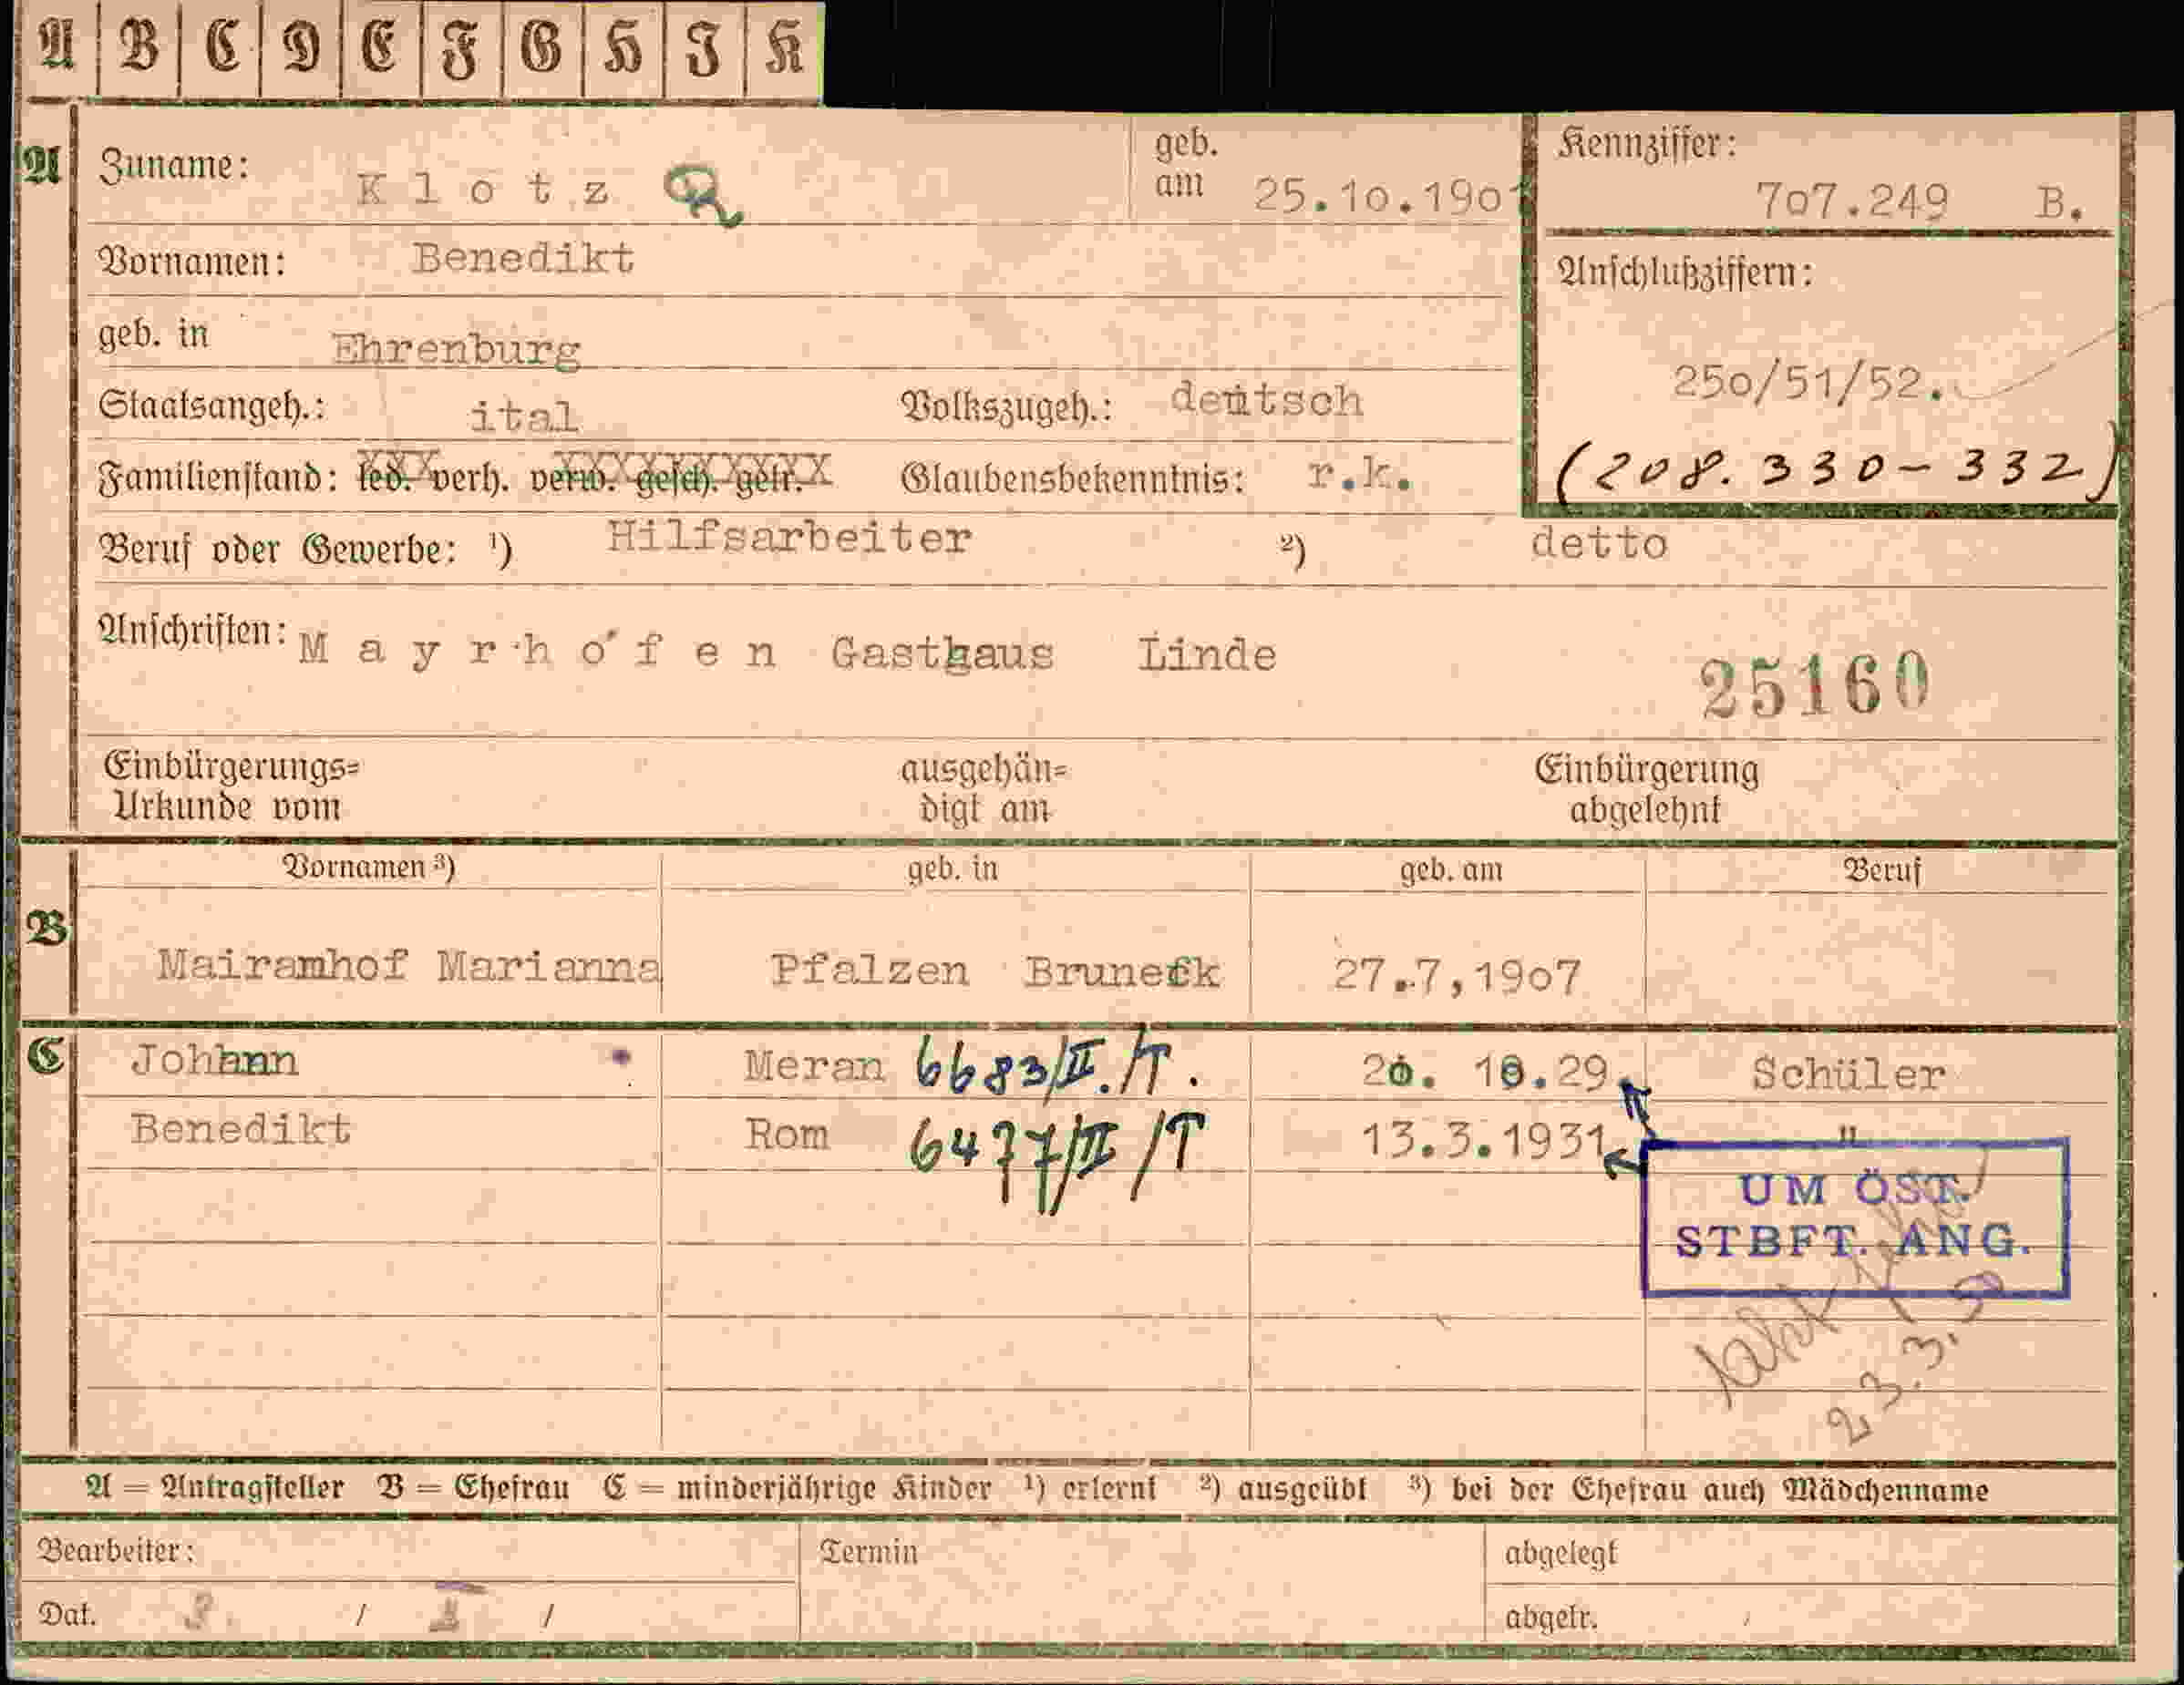 A B C D E F G H J K
A Zuname: Klotz geb. am 25.10.1901 Kennziffer: 707.249 B.
Vornamen: Benedikt Anschlußziffern:
geb. in Ehrenburg 250/51/52.
Staatsangeh.: ital Volkszugeh.: deutsch
Familienstand: led. verh. verw. gesch. getr. Glaubensbekenntnis: r.k. (208.330-332)
Beruf oder Gewerbe: 1) Hilfsarbeiter 2) detto
Anschriften: Mayrhofen Gasthaus Linde
25160
Einbürgerungs= ausgehän= Einbürgerung
Urkunde vom digt am abgelehnt
B Vornamen 3) geb. in geb. am Beruf
Mairamhof Marianna Pfalzen Bruneck 27.7,1907
C Johann Meran 6683/II./T. 20. 10.29. Schüler
Benedikt Rom 6477/II/T 13.3.1931 "
UM ÖST.
STBFT. ANG.
23.3.50
A = Antragsteller B = Ehefrau C = minderjährige Kinder 1) erlernt 2) ausgeübt 3) bei der Ehefrau auch Mädchenname
Bearbeiter: Termin abgelegt
Dat. / / abgetr.